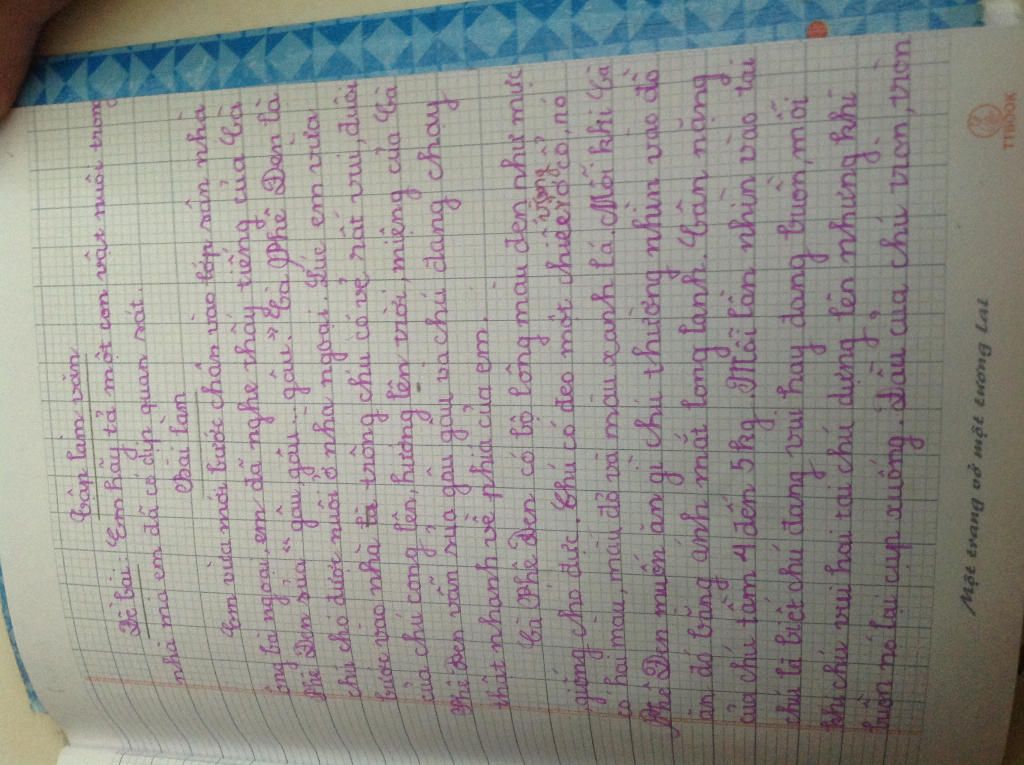 Tập làm văn
Đề bài: Em hãy tả một con vật nuôi trong
nhà mà em đã có dịp quan sát.
Bài làm
Em vừa mới bước chân vào lớp sân nhà
ông bà ngoại, em đã nghe thấy tiếng của Cà
Phê Đen sủa "gâu, gâu... gâu." Cà Phê Đen là
chú chó được nuôi ở nhà ngoại. Lúc em vừa
bước vào nhà là trông chú có vẻ rất vui, đuôi
của chú cong lên, hướng lên trời, miệng của Cà
Phê Đen vẫn sủa gâu gâu và chú đang chạy
thật nhanh về phía của em.
Cà Phê Đen có bộ lông màu đen như mực
giống chó đực. Chú có đeo một chiếc vòng cổ, nó
có hai màu, màu đỏ và màu xanh lá. Mỗi khi Cà
Phê Đen muốn ăn gì chú thường nhìn vào đồ
ăn đó bằng ánh mắt long lanh. Cân nặng
của chú tầm 4 đến 5kg. Mỗi lần nhìn vào tai
chú là biết chú đang vui hay đang buồn, mỗi
khi chú vui hai tai chú dựng lên nhưng khi
buồn nó lại cụp xuống. Đầu của chú tròn, tròn
Một trang vở một tương lai
TTBOOK